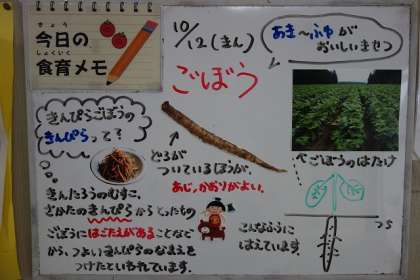 きょう
今日の
しょくいく
食育メモ
10/12(きん)
ごぼう
あき〜ふゆが
おいしいきせつ
きんぴらごぼうの
きんぴらって?
どろが
ついているほうが、
あじ、かおりがよい。
ごぼうのはたけ
きんたろうのむすこ、
さかたのきんぴらからとったもの
ごぼうにはごたえがあることなど
から、つよいきんぴらのなまえを
つけたといわれています。
こんなふうに
はえています。